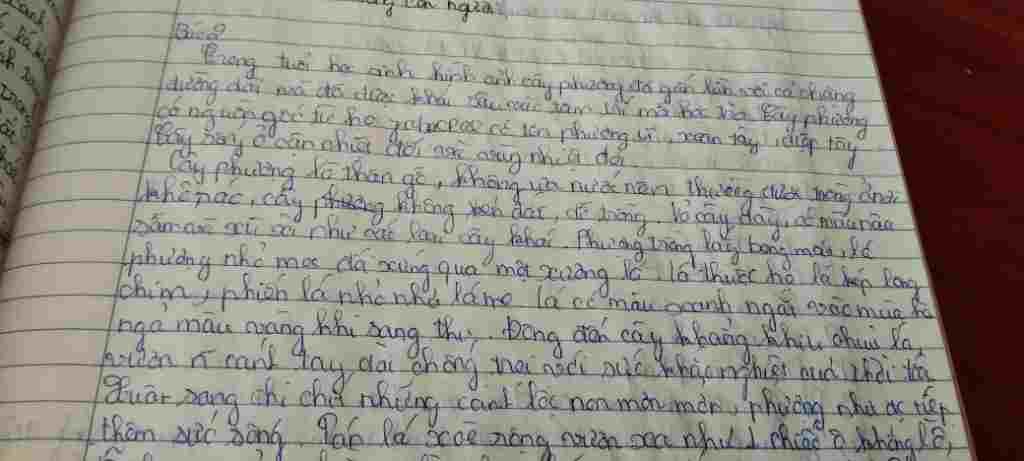 ngữa.
Bài 2
Trong tuổi học sinh hình ảnh cây phượng đã gắn liền với cả chặng
đường dài mà đó được khắc sâu vào tâm trí mỗi học trò. Cây phượng
có nguồn gốc từ họ có tên phượng vĩ, xoan tây, điệp tây
Cây này ở cận nhiệt đới và vùng nhiệt đới.
Cây phượng là thân gỗ, không ưa nước nên thường được trồng ở nơi
khô ráo, cây không kén đất, dễ trồng, vỏ cây dày, có màu nâu
sẫm và xù xì như các loại cây khác. Phượng trồng lấy bóng mát, lá
phượng nhỏ mọc đối xứng qua một xương lá. lá thuộc họ lá kép lông
chim, phiến lá nho nhỏ lá có màu xanh ngắt vào mùa hè
ngả màu vàng khi sang thu. Đông đến cây khẳng khiu chui lá,
vươn cánh tay dài chống với sức khắc nghiệt của thời tiết
Xuân sang chi chít những cành lộc non mơn mởn, phượng như được tiếp
thêm sức sống. Tán lá xoè rộng vươn xa như 1 chiếc ô khổng lồ,